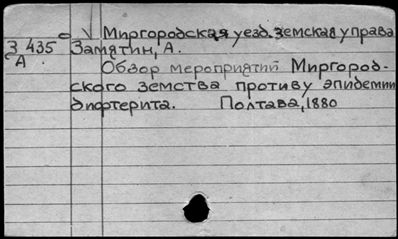 Миргородская уезд. земская управа
З 435 Замятин, А.
А
Обзор мероприятий Миргород-
ского земства противу эпидемии
дифтерита. Полтава, 1880